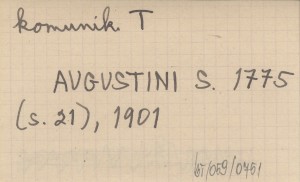 komunik. T
AUGUSTINI S. 1775
(s. 21), 1901
67/059/0751